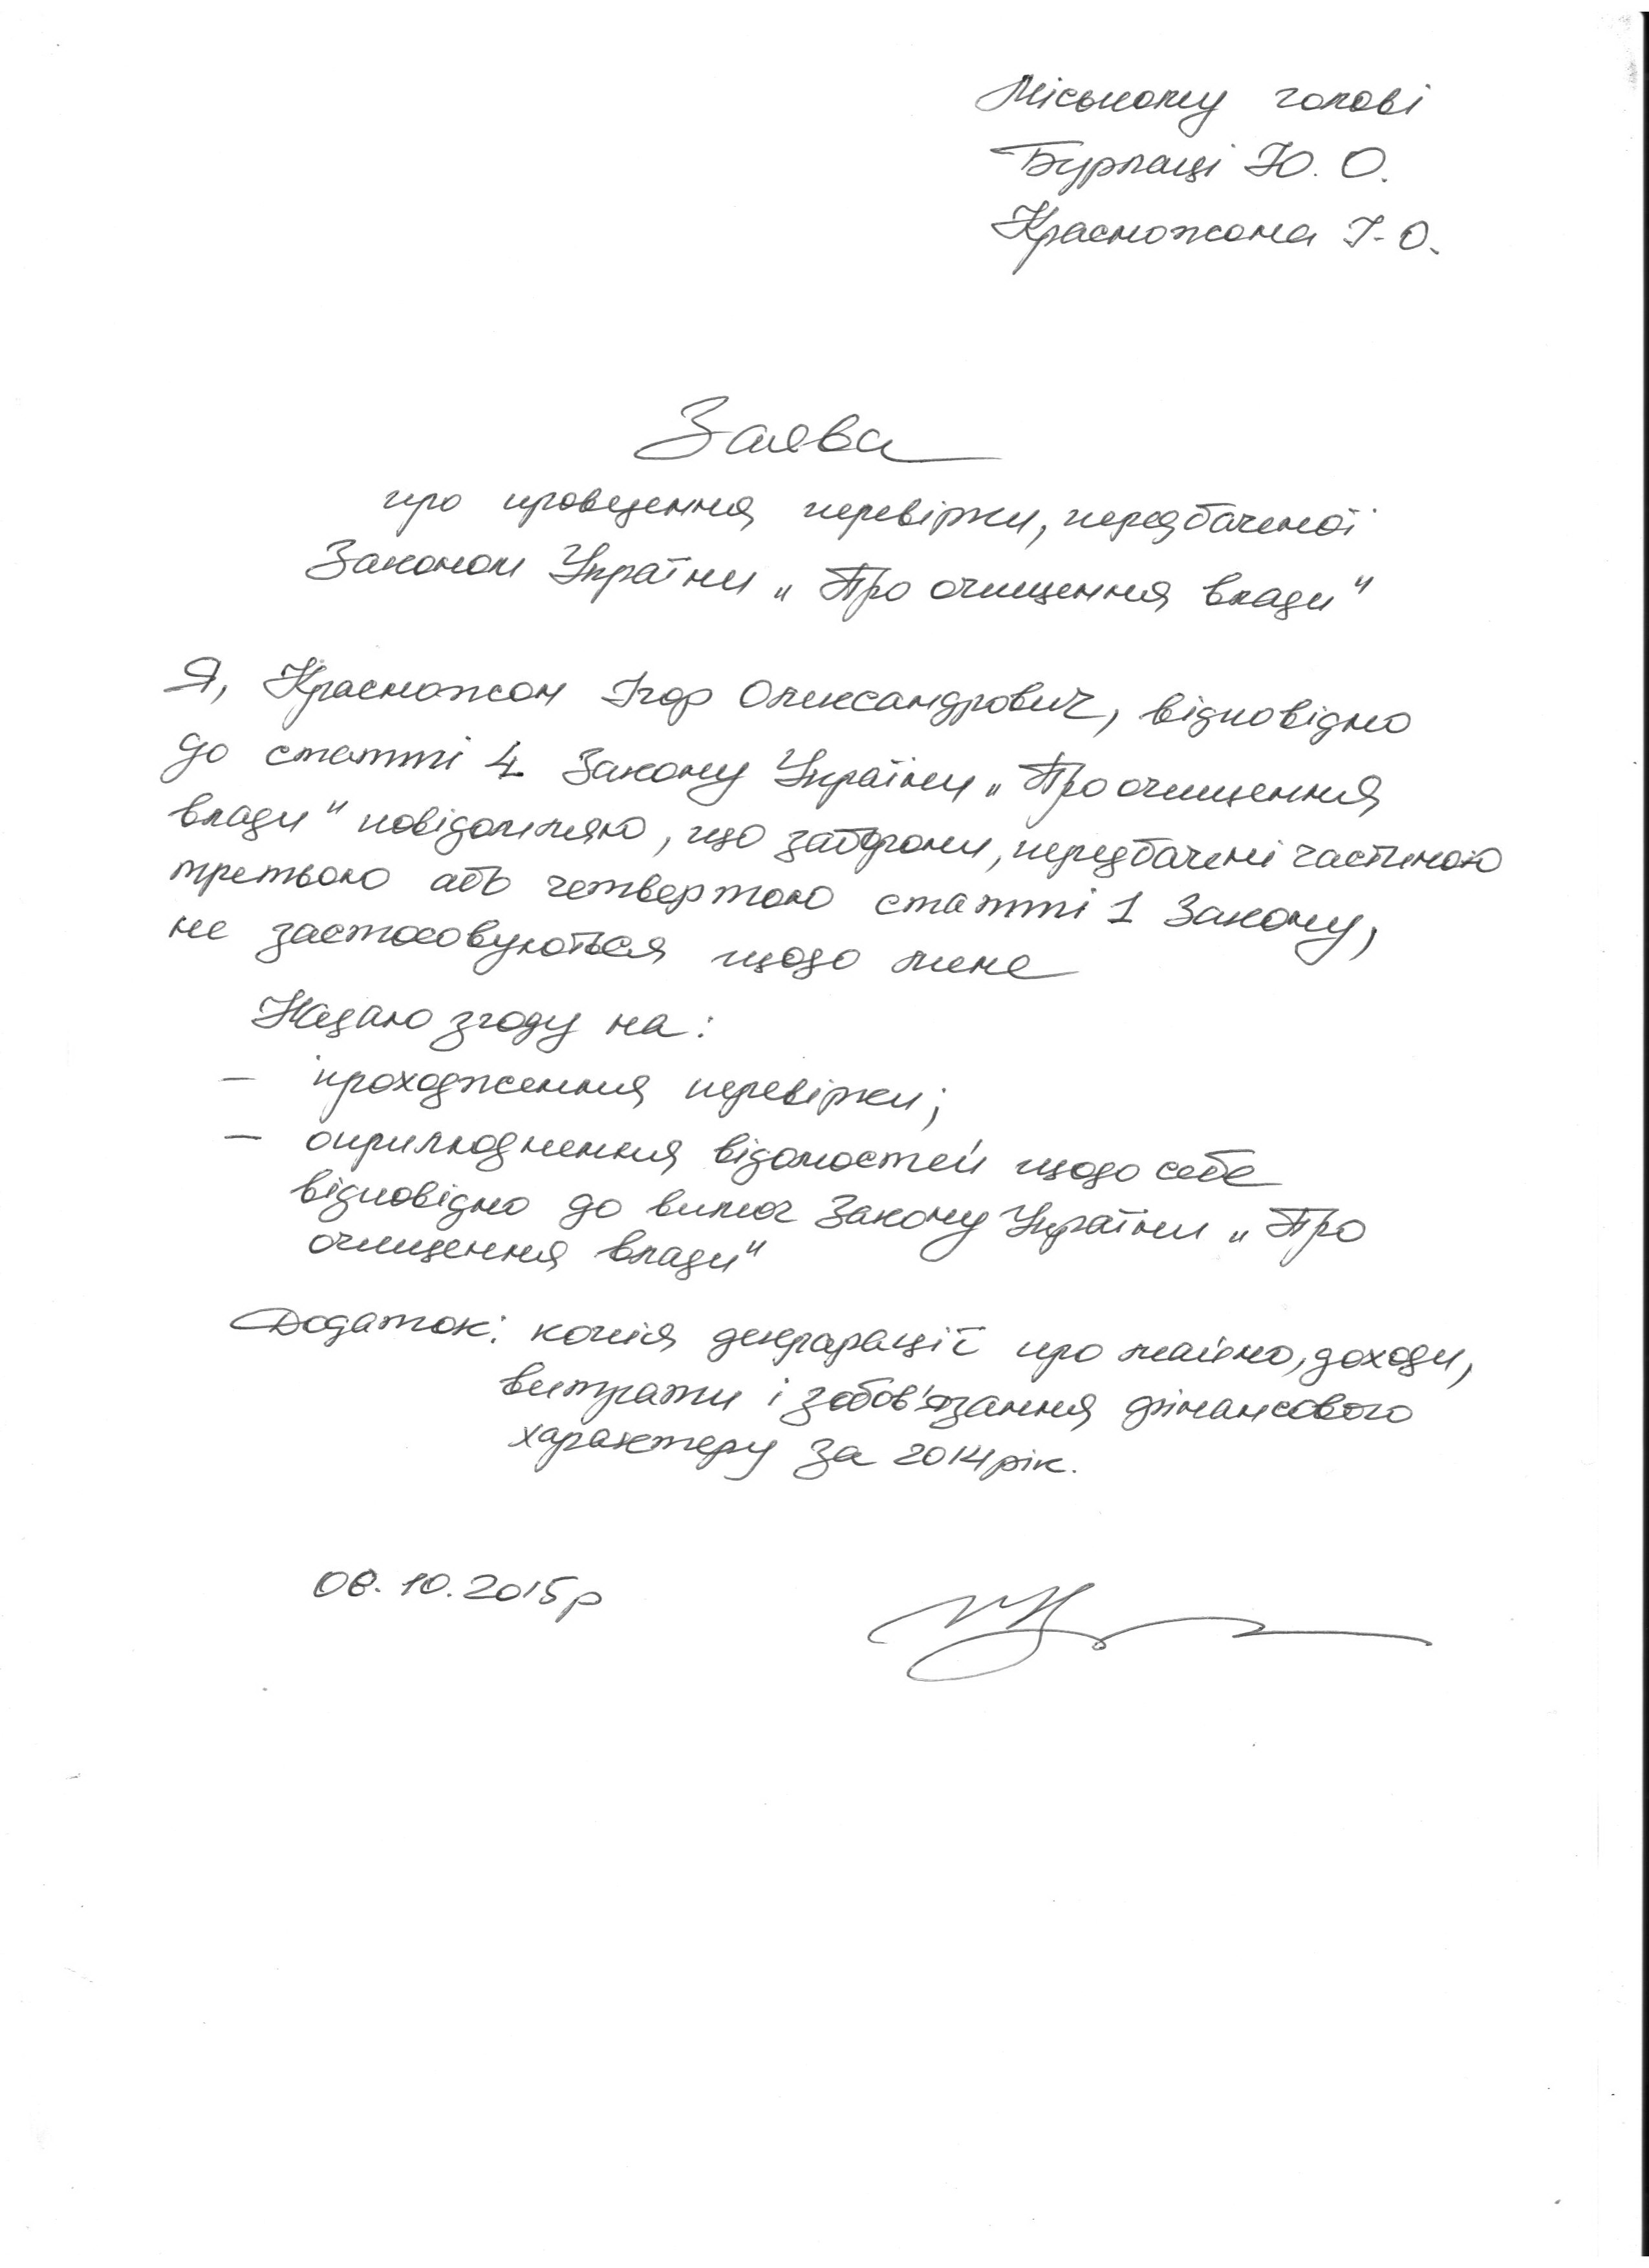 Міському голові
Бурлаці Ю. О.
Красножона І. О.
Заява
про проведення перевірки, передбаченої
Законом України „Про очищення влади"
Я, Красножон Ігор Олександрович, відповідно
до статті 4 Закону України „Про очищення
влади" повідомляю, що заборони, передбачені частиною
третьою або четвертою статті 1 Закону,
не застосовуються щодо мене
Надаю згоду на:
— проходження перевірки;
— оприлюднення відомостей щодо себе
відповідно до вимог Закону України „Про
очищення влади"
Додаток: копія декларації про майно, доходи,
витрати і зобов'язання фінансового
характеру за 2014 рік.
08.10.2015р